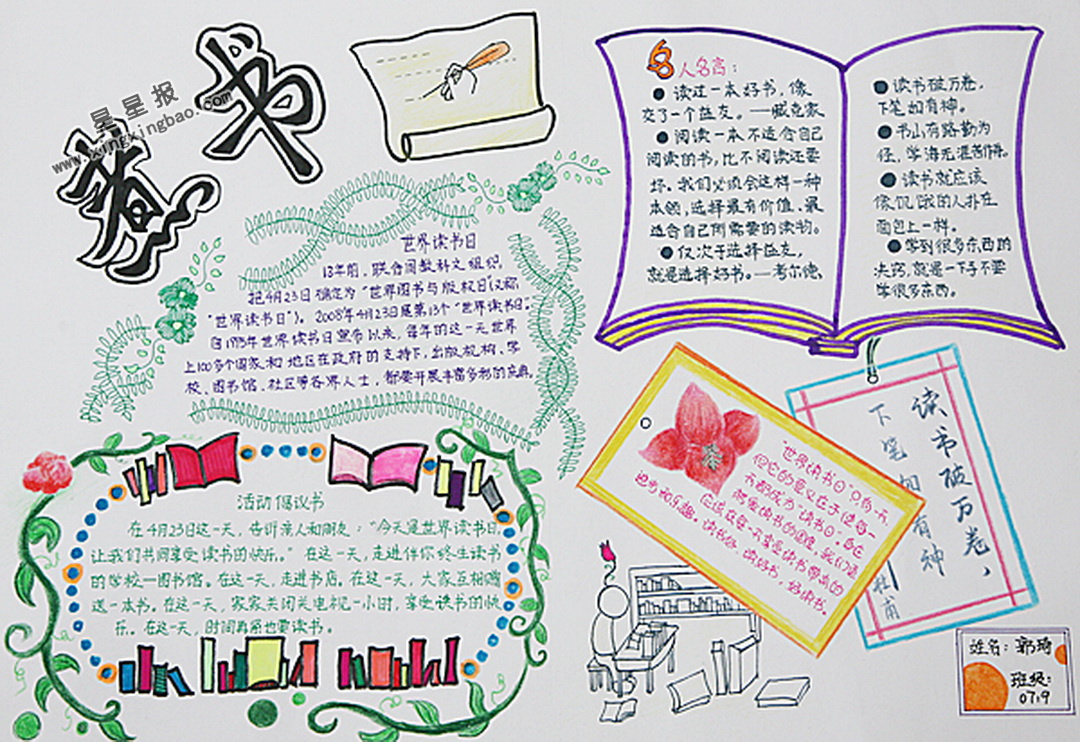 书
星星报
www.xingxingbao.com
世界读书日
13年前,联合国教科文组织,
把4月23日确定为“世界图书与版权日(又称
“世界读书日”)。2008年4月23日是第13个“世界读书日”。
自1995年世界读书日宣布以来,每年的这一天世界
上100多个国家和地区在政府的支持下,出版机构、学
校、图书馆、社区等各界人士,都要开展丰富多彩的庆典
活动倡议书
在4月23日这一天,告诉亲人和朋友:“今天是世界读书日,
让我们共同享受读书的快乐。”在这一天,走进伴你终生读书
的学校—图书馆。在这一天,走进书店。在这一天,大家互相赠
送一本书。在这一天,家家关闭关电视一小时,享受读书的快
乐。在这一天,时间再紧也要读书。
名人名言:
●读过一本好书,像
交了一个益友。——臧克家
●阅读一本不适合自己
阅读的书,比不阅读还要
坏。我们必须会这样一种
本领,选择最有价值、最
适合自己所需要的读物。
●仅次于选择益友,
就是选择好书。—考尔德
●读书破万卷,
下笔如有神。
●书山有路勤为
径,学海无涯苦作舟。
●读书就应该
像饥饿的人扑在
面包上一样。
●学到很多东西的
诀窍,就是一下子不要
学很多东西。
“世界读书日”只有一天,
但它的意义在于使每一
天都成为“读书日”。自己
应该在每一天享受读书带来的
进步和乐趣。读书好,读好书,好读书。
读书破万卷,
下笔如有神
杜甫
姓名:郭琦
班级:
07.9